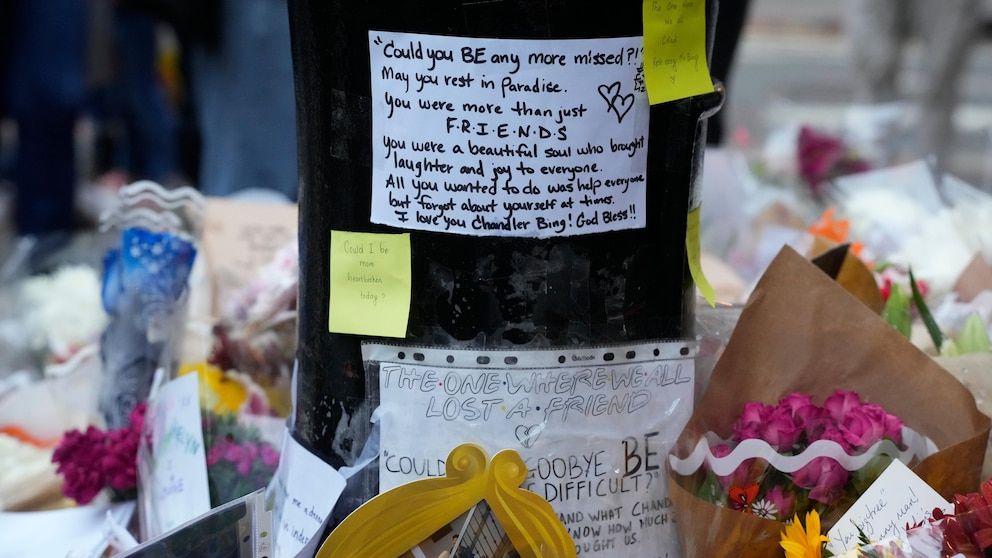 "Could you BE any more missed?!?
May you rest in paradise.
you were more than just
F·R·I·E·N·D·S
you were a beautiful soul who brought
laughter and joy to everyone.
All you wanted to do was help everyone
but forgot about yourself at times.
I love you Chandler Bing! God Bless!!
The one
we all
cried
Could I be
more
heartbroken
today?
THE·ONE·WHERE·WE·ALL
LOST·A·FRIEND
"COULD
GOODBYE BE
DIFFICULT?"
AND WHAT CHAND
KNOW HOW MUCH
OUGHT US.